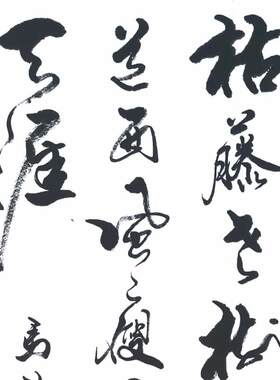 枯藤老樹
道西風瘦
天涯
馬